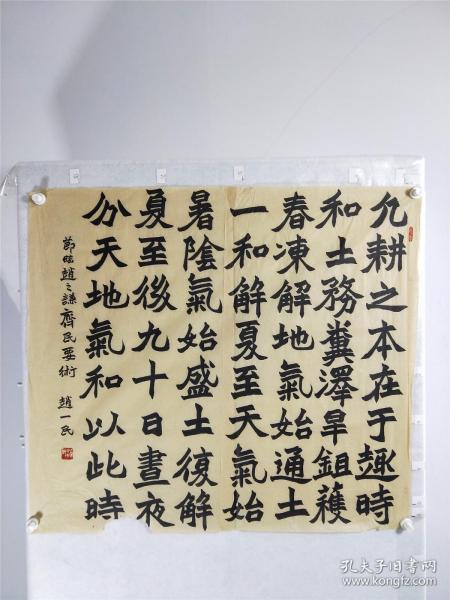 允耕之本在于趣時
和土務糞澤旱鉏蒦
春凍解地氣始通土
一和解夏至天氣始
暑陰氣始盛土復解
夏至後九十日晝夜
分天地氣和以此時
節臨趙之謙齊民要術 趙一民
孔夫子旧书网
www.kongfz.com